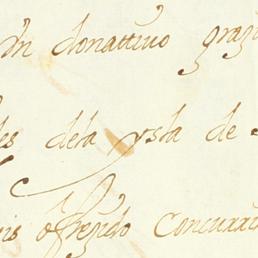 Un donattiuo graz
es dela ysla de
is ofrezio Concurri